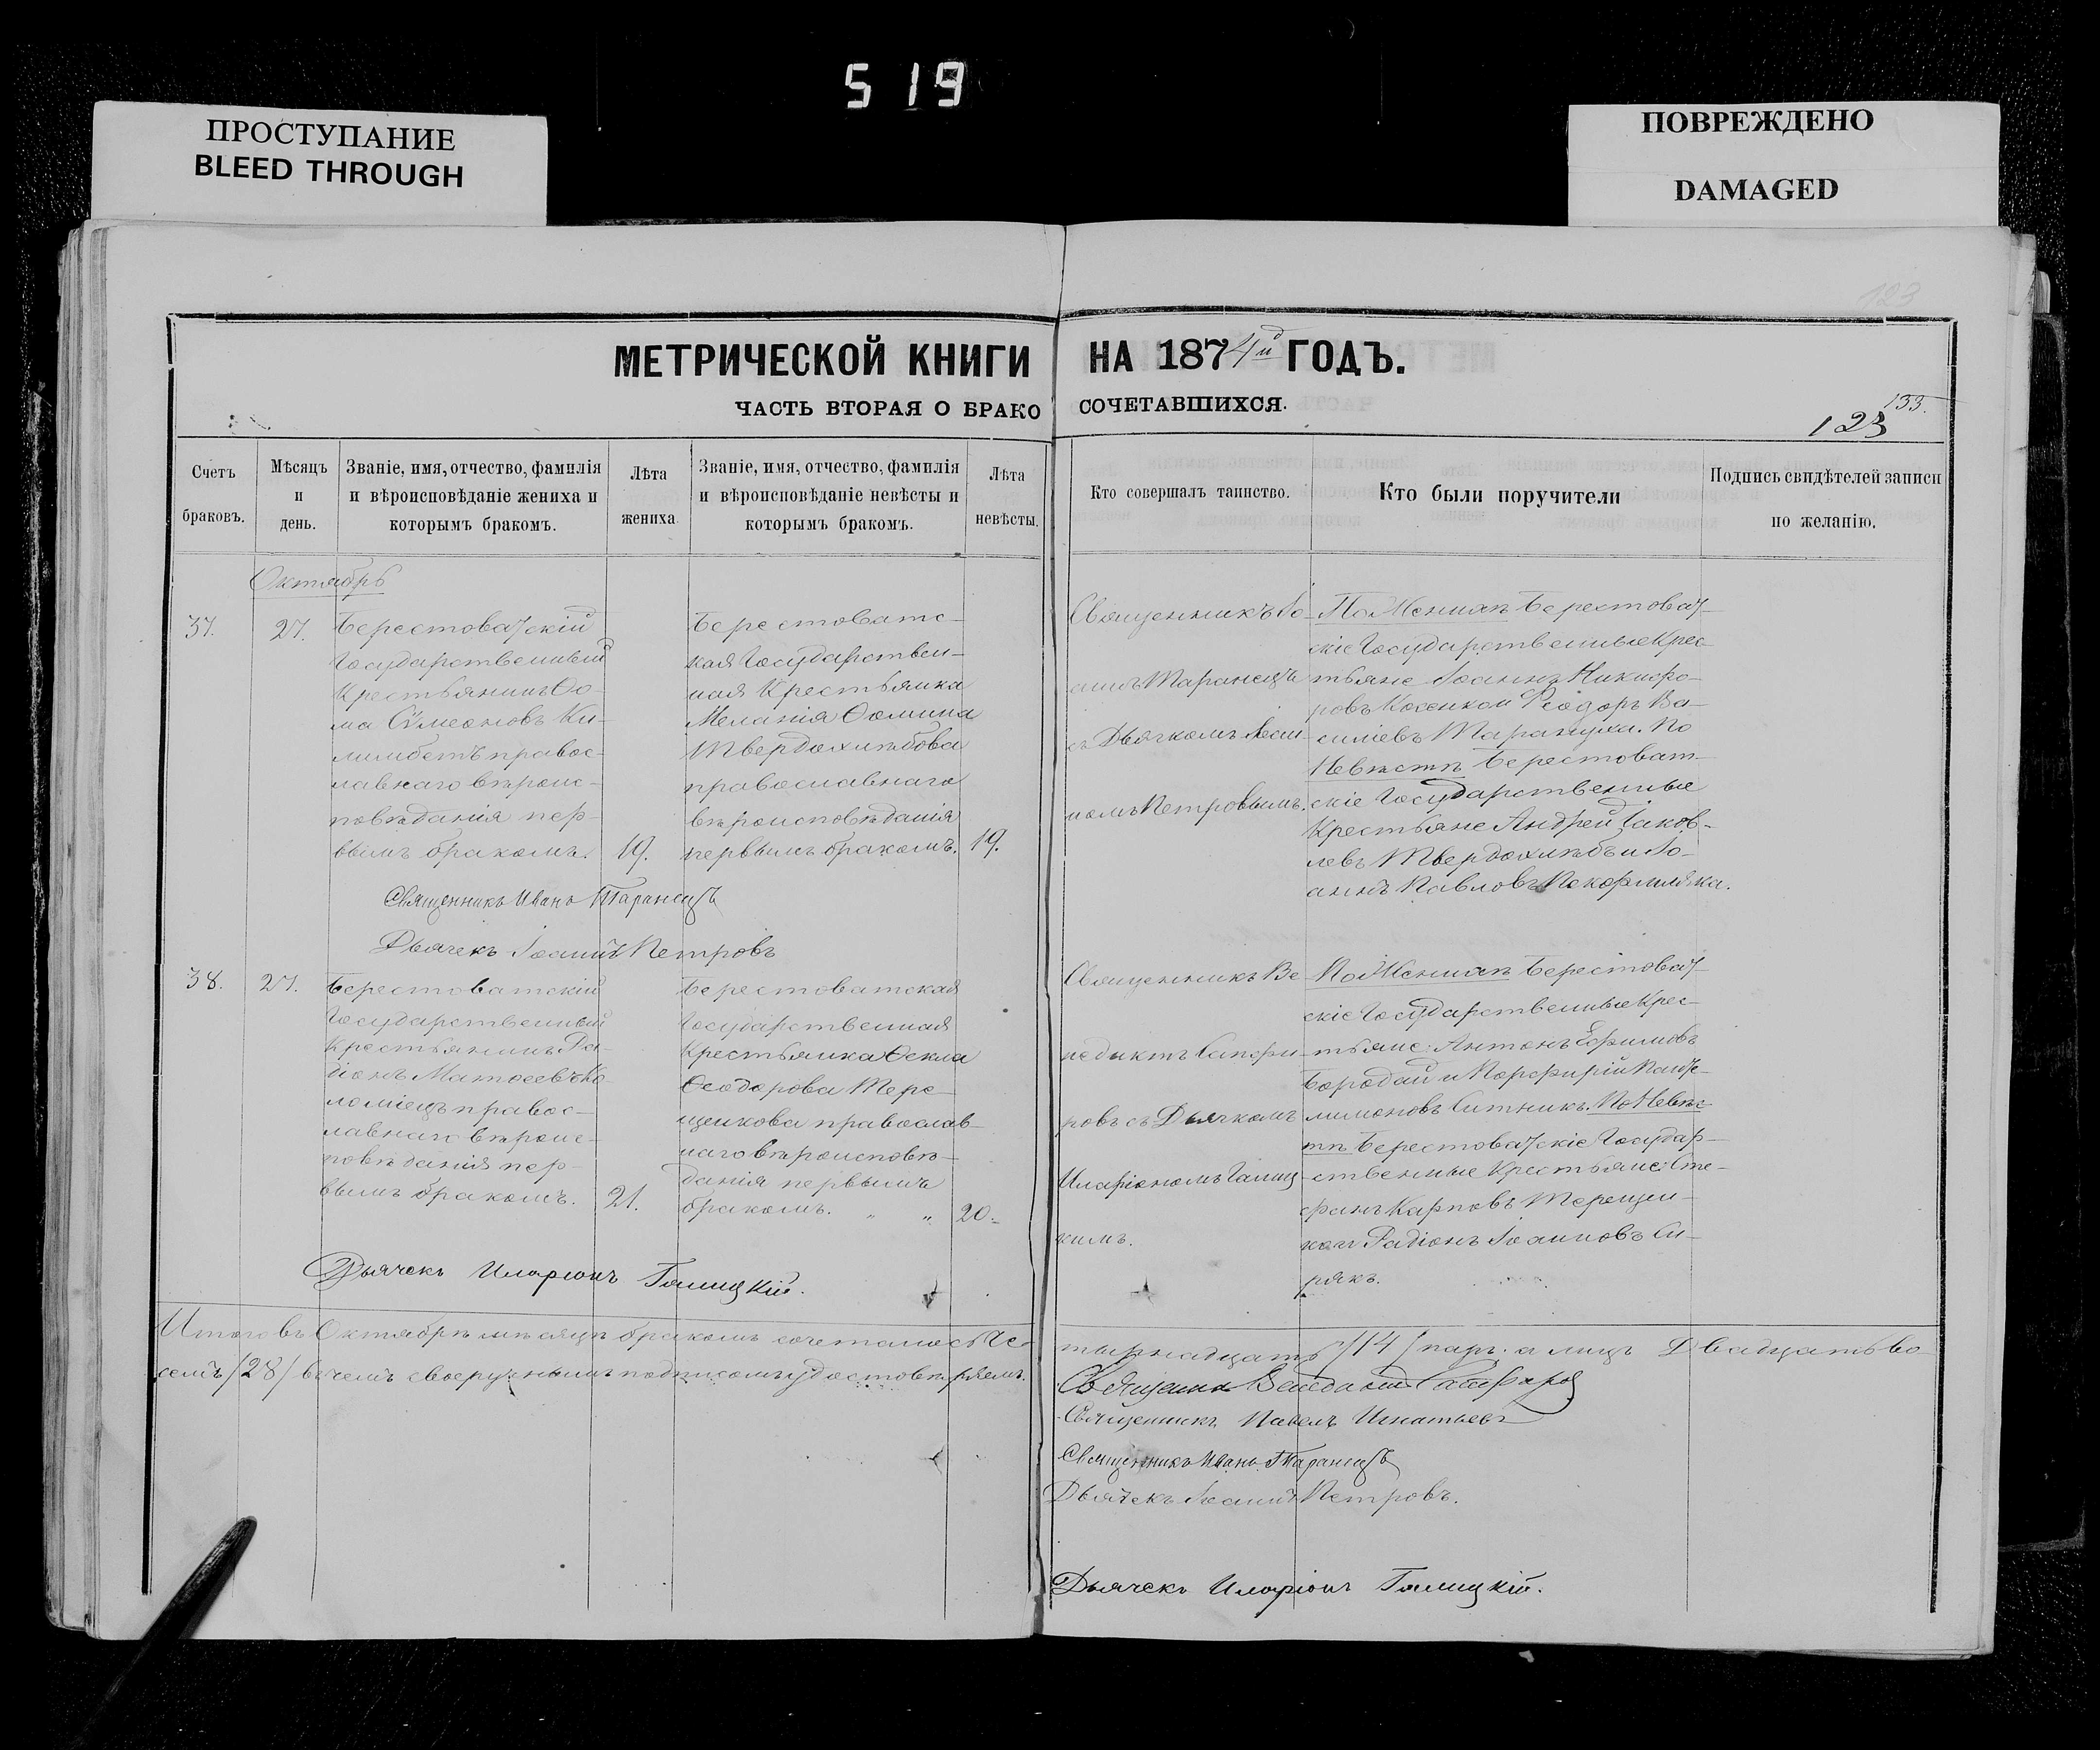 519
ПРОСТУПАНИЕ
BLEED THROUGH
ПОВРЕЖДЕНО
DAMAGED
123
МЕТРИЧЕСКОЙ КНИГИ НА 1874й ГОДЪ.
ЧАСТЬ ВТОРАЯ О БРАКОСОЧЕТАВШИХСЯ.
133.
123
Счетъ браковъ.
Мѣсяцъ и день.
Званіе, имя, отчество, фамилія
и вѣроисповѣданіе жениха и
которымъ бракомъ.
Лѣта жениха
Званіе, имя, отчество, фамилія
и вѣроисповѣданіе невѣсты и
которымъ бракомъ.
Лѣта невѣсты.
Кто совершалъ таинство.
Кто были поручители
Подпись свидѣтелей записи
по желанію.
Октябрь
37.
27.
Берестоватскій
Государственный
Крестьянинъ Ѳо-
ма Сѵмеоновъ Ки-
лимбетъ правос-
лавнаго вѣроис-
повѣданія пер-
вымъ бракомъ.
19.
Берестоватс-
кая Государствен-
ная Крестьянка
Меланія Ѳомина
Твердохлѣбова
православнаго
вѣроисповѣданія
первымъ бракомъ.
19.
Священникъ Іо-
аннъ Таранецъ
съ Дьячкомъ Іоан-
номъ Петровымъ.
По Женихѣ Берестоват-
скіе Государственные Крес-
тьяне Іоаннъ Никифо-
ровъ Косенко и Ѳеодоръ Ва-
силіевъ Тарануха. По
Невѣстѣ Берестоват-
скіе Государственные
Крестьяне Андрей Іаков-
левъ Твердохлѣбъ и Іо-
аннъ Павловъ Покормляка.
Священникъ Иванъ Таранецъ
Дьячекъ Іоаннъ Петровъ
38.
27.
Берестоватскій
Государственный
Крестьянинъ Ра-
діонъ Матѳеевъ Ко-
ломіецъ правос-
лавнаго вѣроис-
повѣданія пер-
вымъ бракомъ.
21.
Берестоватская
Государственная
Крестьянка Ѳекла
Ѳеодорова Тере-
щенкова православ-
наго вѣроисповѣ-
данія первымъ
бракомъ. " "
20.
Священникъ Ве-
недиктъ Сапфи-
ровъ съ Дьячкомъ
Иларіономъ Галиц-
кимъ.
По Женихѣ Берестоват-
скіе Государственные Крес-
тьяне: Антонъ Ефимовъ
Бородай и Порфирій Панте-
лимоновъ Ситникъ. По Невѣс-
тѣ Берестоватскіе Государ-
ственные Крестьяне: Сте-
фанъ Карповъ Терещен-
ко и Радіонъ Іоанновъ Си-
рякъ.
Дьячекъ Иларіонъ Галицкій.
Итого въ Октябрѣ мѣсяцѣ бракомъ сочеталось че-
тырнадцать /14/ паръ. а лицъ Двадцать во-
семъ /28/ въ чемъ своеручнымъ подписомъ удостовѣряемъ.
Священникъ Венедиктъ Сапфировъ
Священникъ Павелъ Игнатьевъ
Священникъ Иванъ Таранецъ
Дьячекъ Іоаннъ Петровъ.
Дьячекъ Иларіонъ Галицкій.